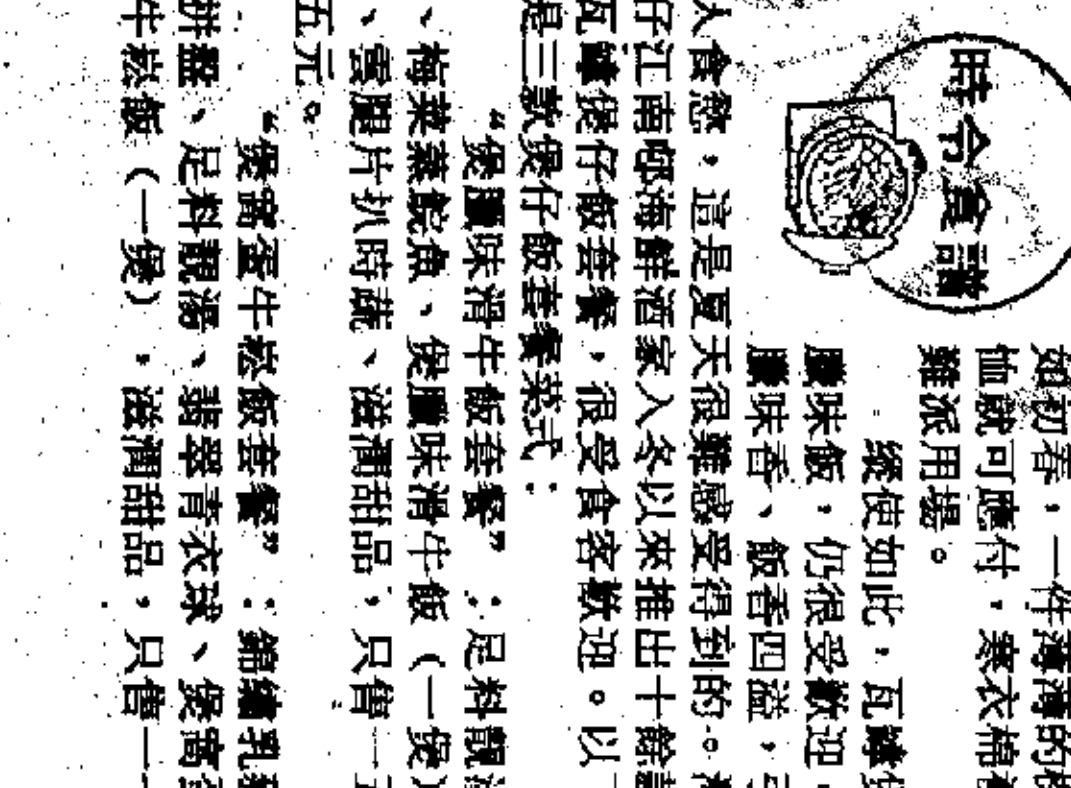 時令食譜
如初春，一件薄薄的
恤就可應付，寒衣棉
難派用場。
縱使如此，瓦罉煲
臘味飯，仍很受歡迎，
臘味香、飯香四溢，
人食慾，這是夏天很難感受得到的。
仔江南邨海鮮酒家入冬以來推出十餘
瓦罉煲仔飯套餐，很受食客歡迎。以
是三款煲仔飯套餐菜式：
“煲臘味滑牛飯套餐”：足料靚湯
、梅菜蒸鯇魚、煲臘味滑牛飯（一煲）
、雲腿片扒時蔬、滋潤甜品，只售一
五元。
“煲窩蛋牛崧飯套餐”：錦繡乳豬
拼盤、足料靚湯、翡翠青衣球、煲窩
牛崧飯（一煲），滋潤甜品，只售一